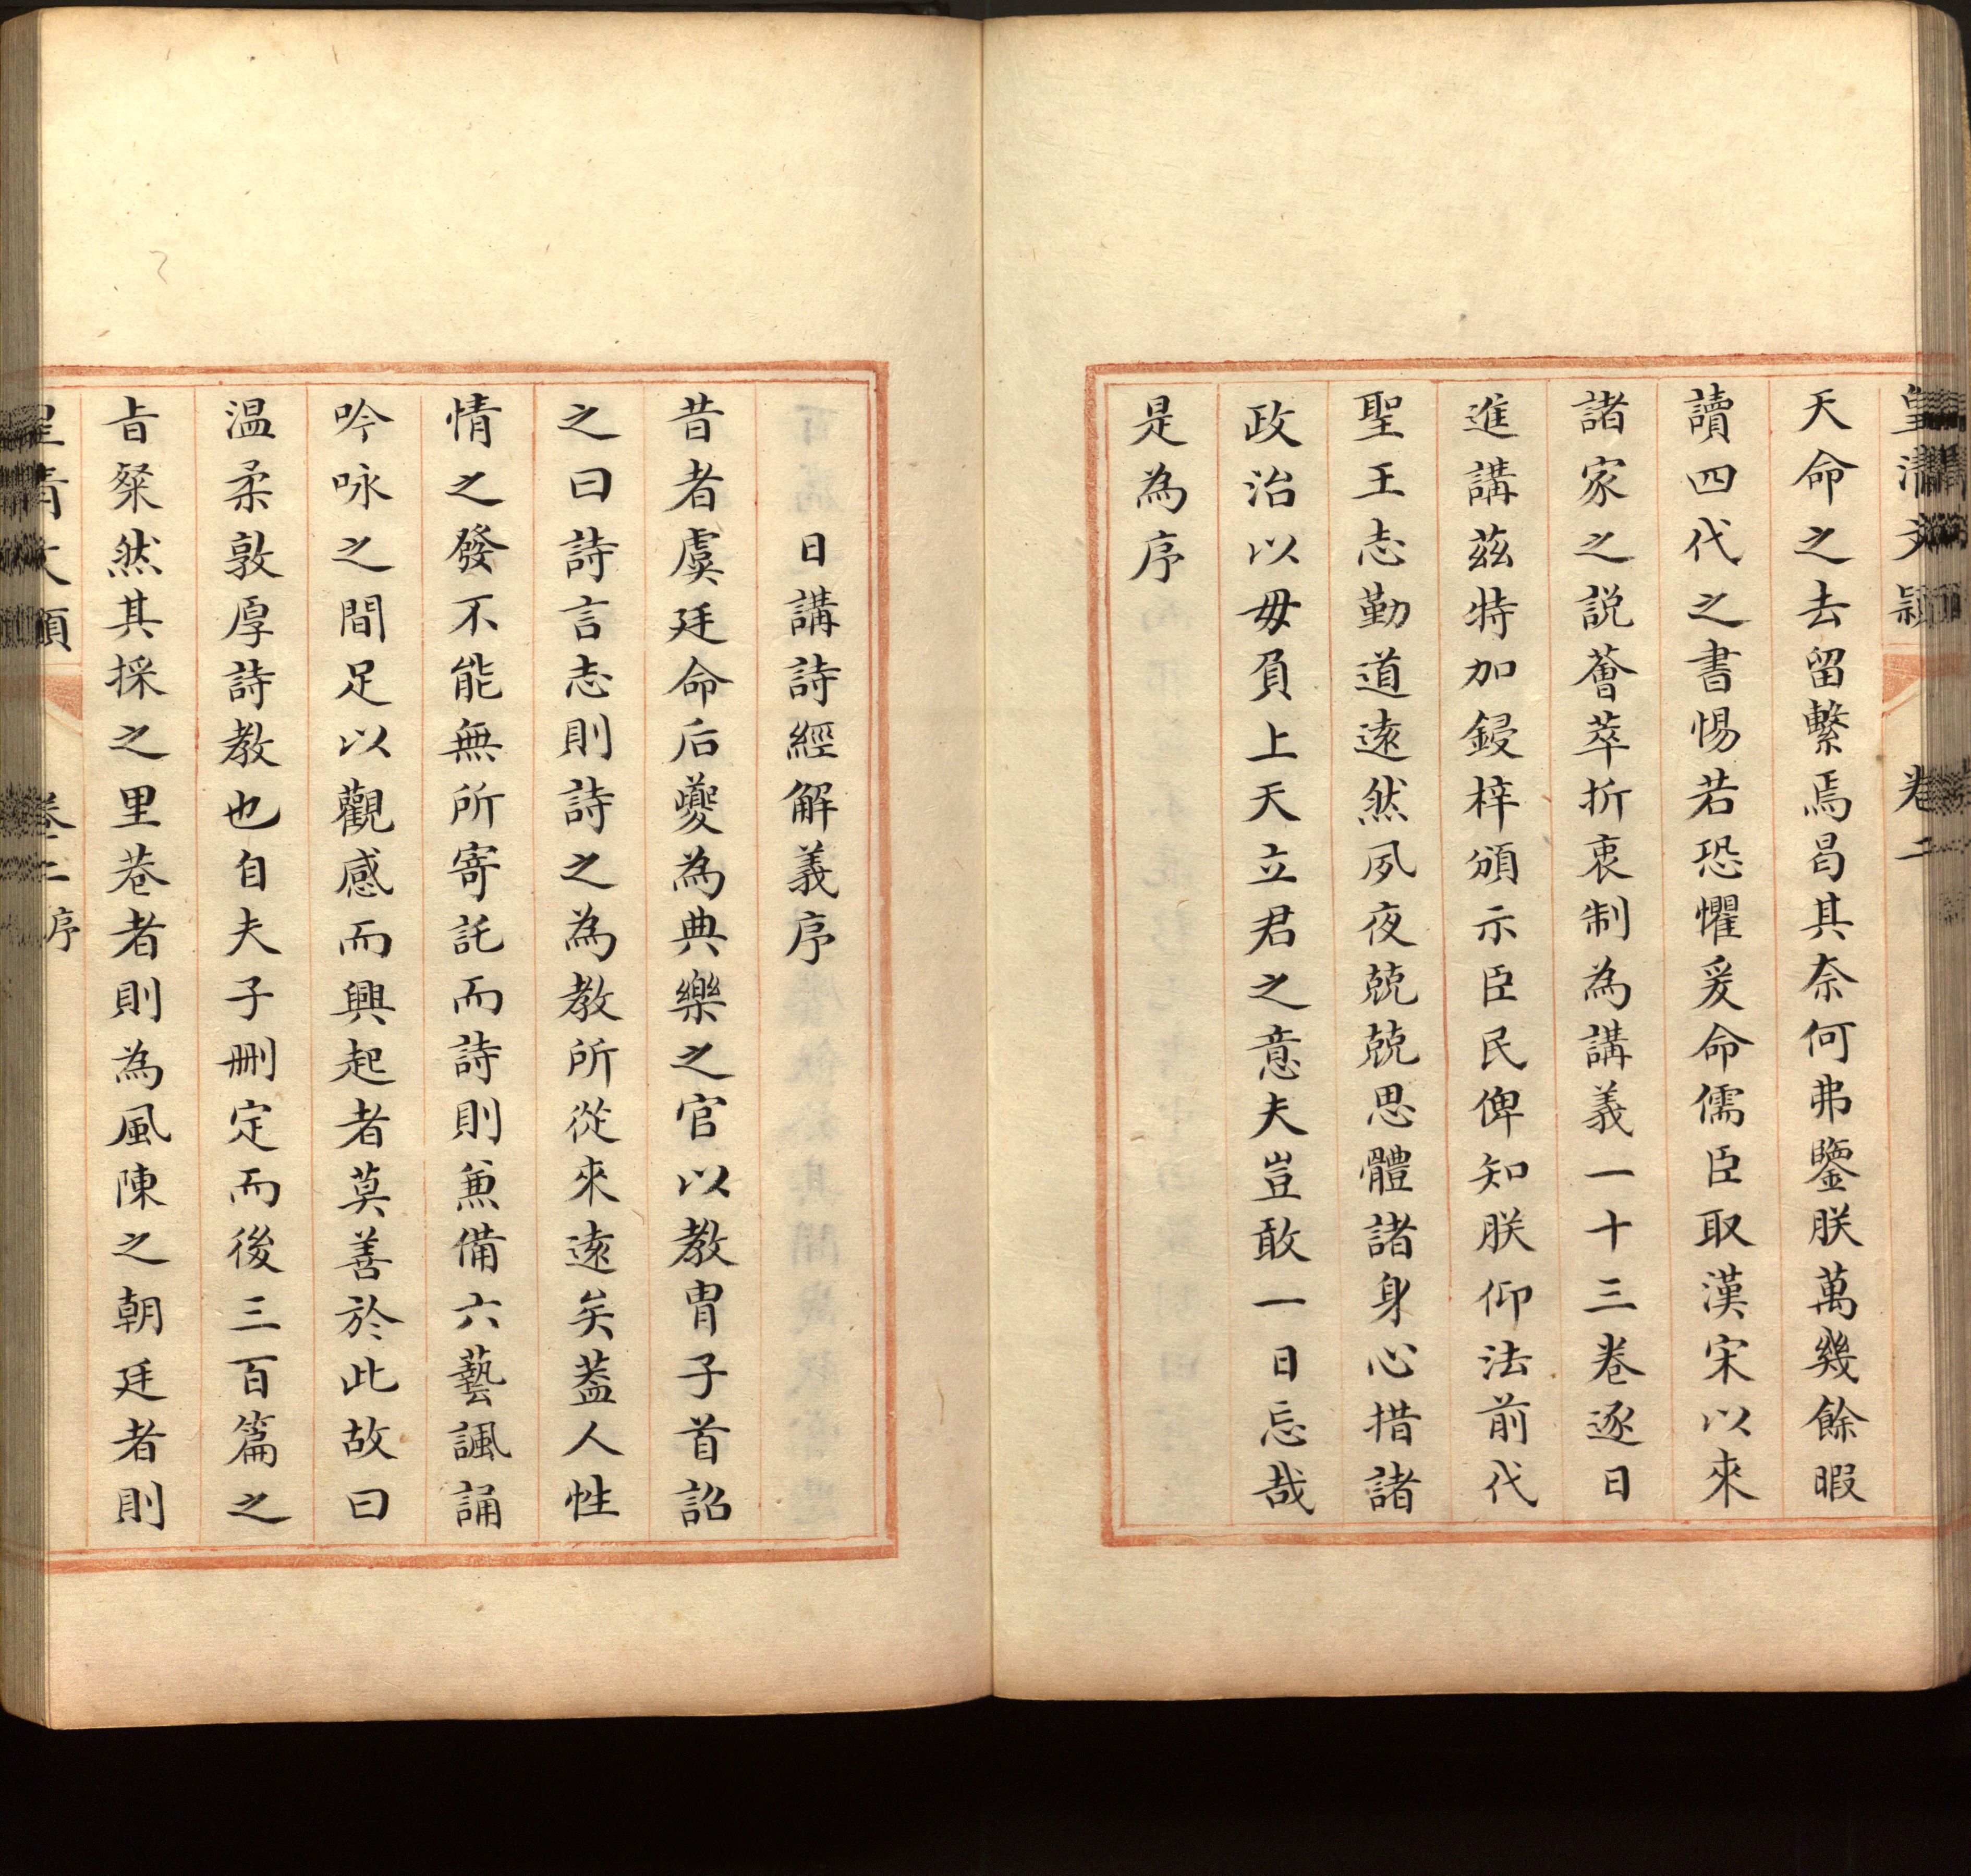 皇清文穎 卷二
天命之去留繫焉曷其奈何弗鑒朕萬幾餘暇
讀四代之書惕若恐懼爰命儒臣取漢宋以來
諸家之説薈萃折衷制為講義一十三卷逐日
進講茲特加鋟梓頒示臣民俾知朕仰法前代
聖王志勤道遠然夙夜兢兢思體諸身心措諸
政治以毋負上天立君之意夫豈敢一日忘哉
是為序
日講詩經解義序
昔者虞廷命后夔為典樂之官以教胄子首詔
之曰詩言志則詩之為教所從來遠矣蓋人性
情之發不能無所寄託而詩則兼備六藝諷誦
吟咏之間足以觀感而興起者莫善於此故曰
温柔敦厚詩教也自夫子刪定而後三百篇之
旨粲然其採之里巷者則為風陳之朝廷者則
皇清文穎 卷二 序